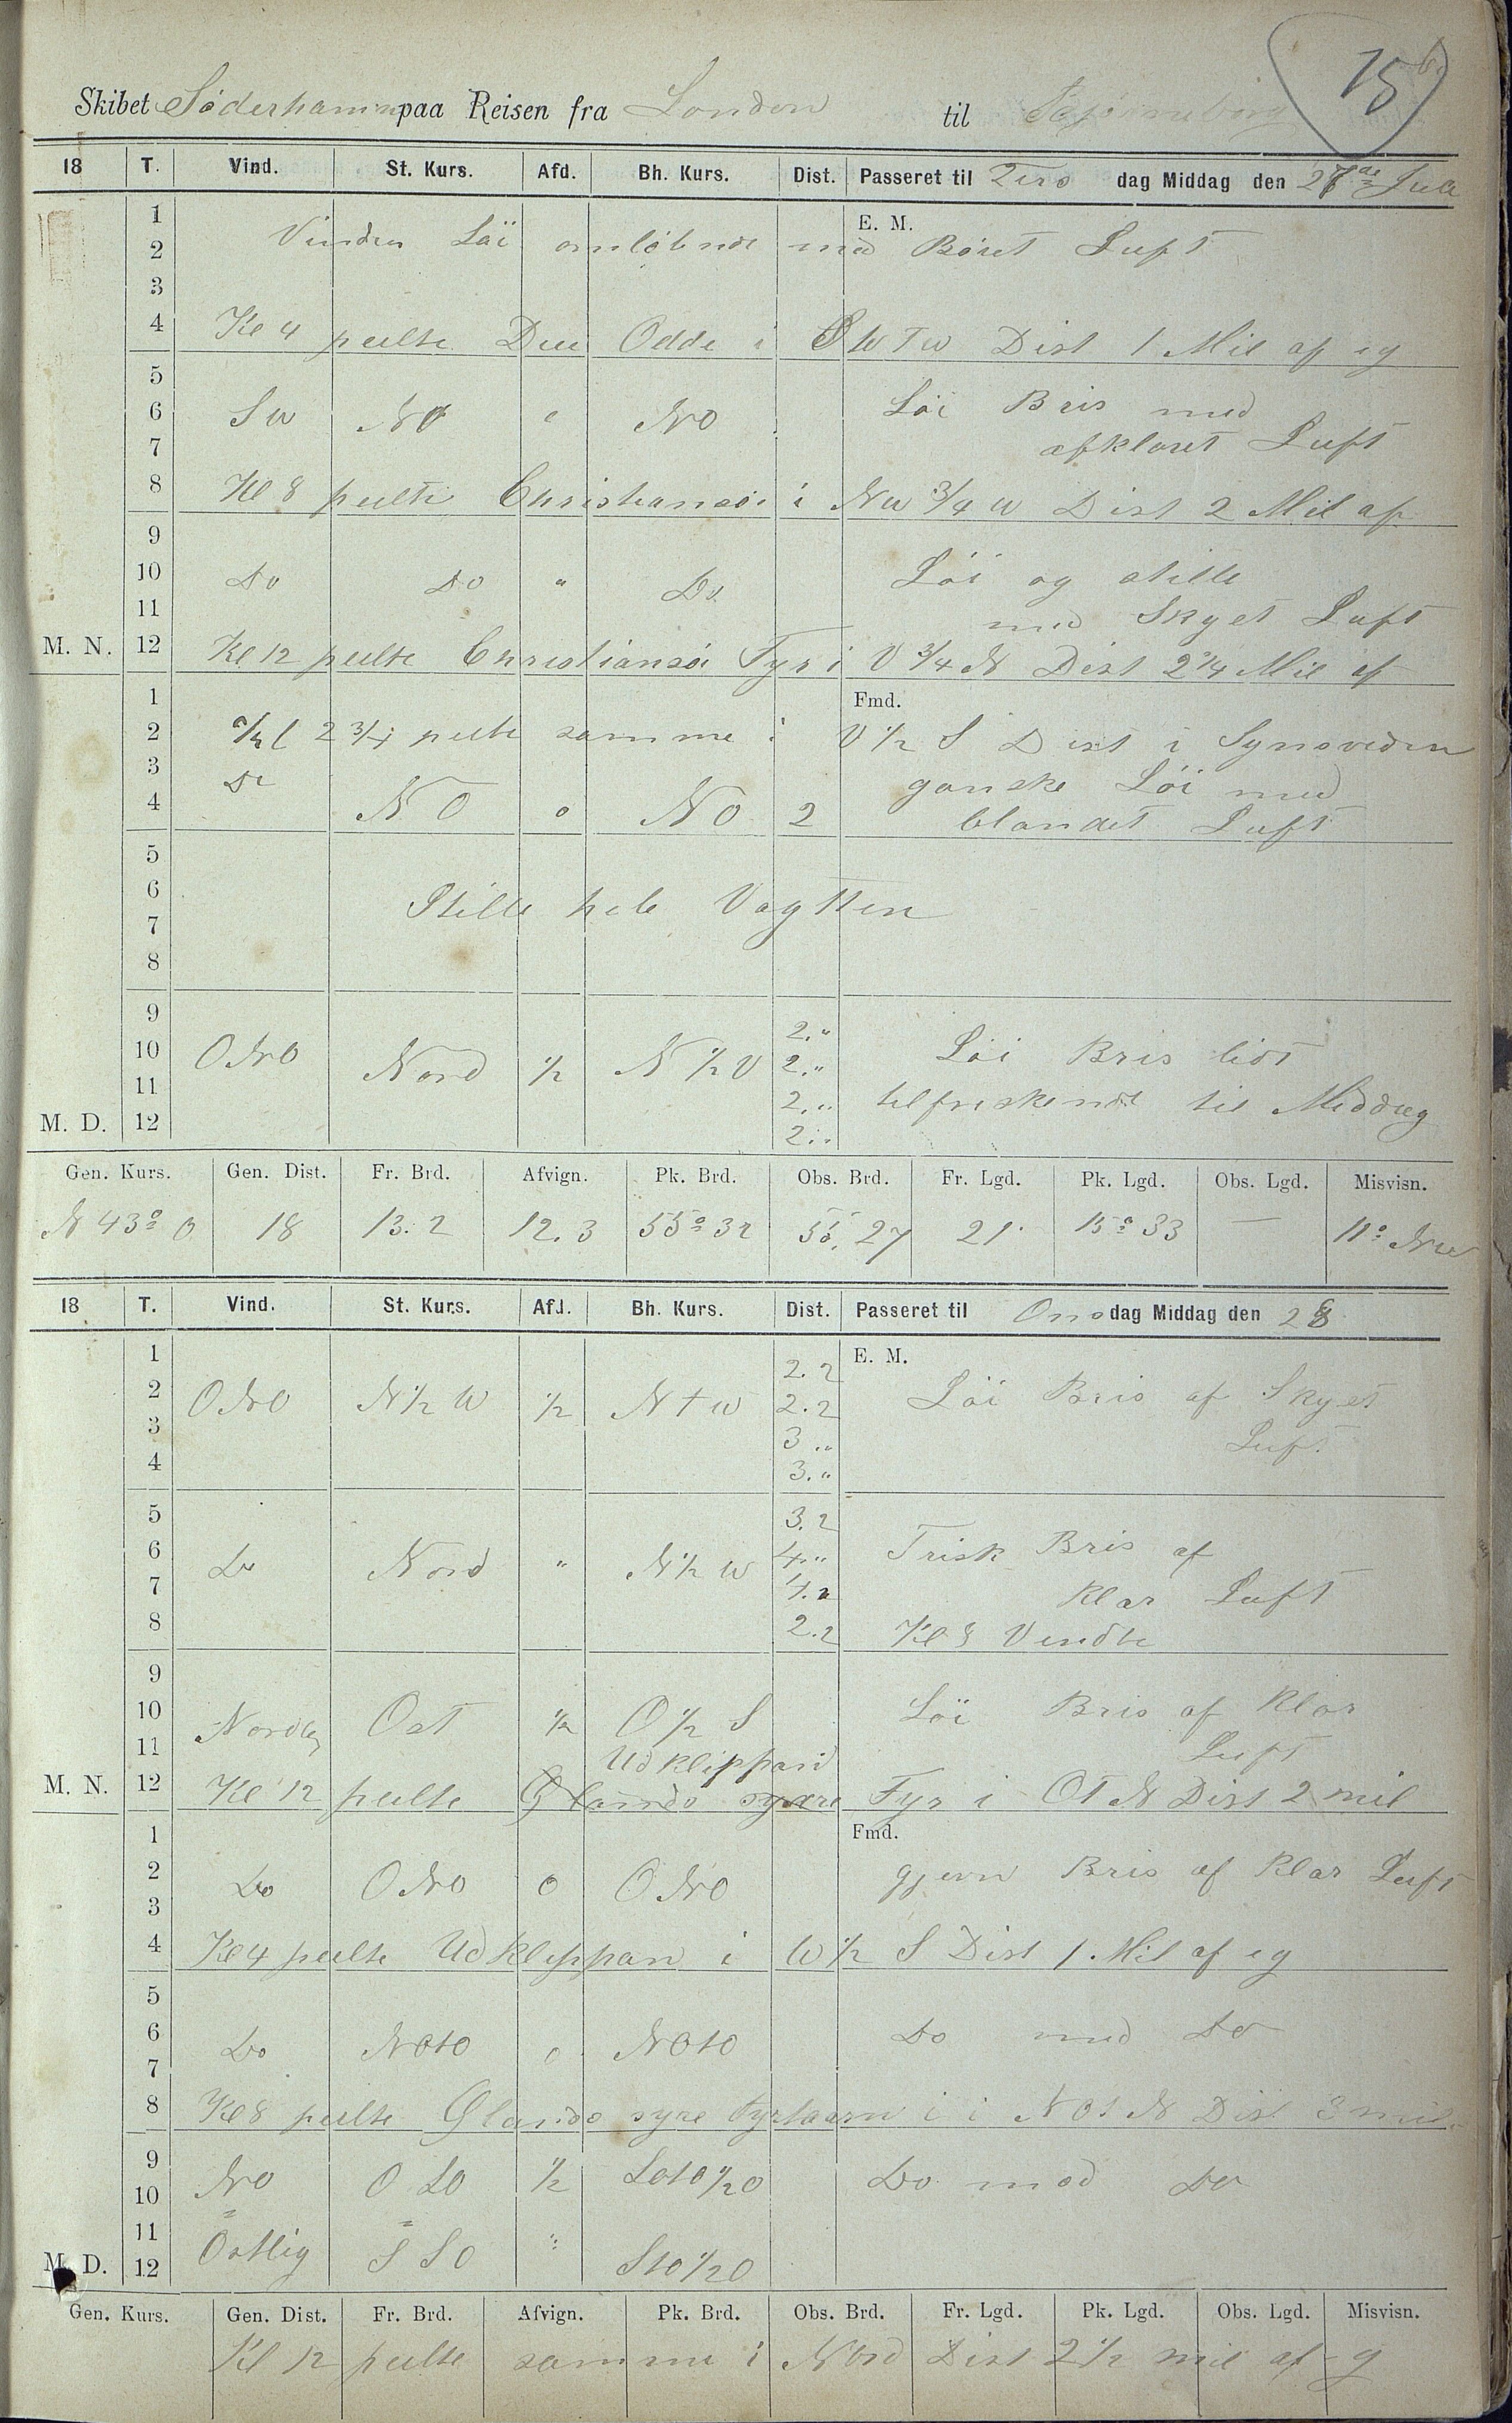 15
Skibet Söderhamn paa Reisen fra London til Bjørneborg
18 T. Vind. St. Kurs. Afd. Bh. Kurs. Dist. Passeret til Tirs dag Middag den 27de Juli
1 E. M.
2 Vinden Löi omløbende med Böiet Luft
3
4 Kl 4 peilte Due Odde i SWTW Dist 1 Mil af eg
5
6 SW NO " NO Löi Bris med
7 afklaret Luft
8 Kl 8 peilte Christiansöi i NW 3/4 W Dist 2 Mil af
9
10 Do Do " Do Löi og stille
11 med Skyet Luft
M. N. 12 Kl 12 peilte Christiansöi Fyr i V 3/4 N Dist 2 1/4 Mil af
1 Fmd.
2 Kl 2 3/4 peilte samme i V 1/2 S Dist i Synsvidden
3 Do ganske Löi med
4 NO 0 NO 2 blandet Luft
5
6 Stille hele Vagtten
7
8
9 2."
10 ONO Nord 1/2 N 1/2 V 2." Löi Bris lidt
11 2." tilfriskende til Middag
M. D. 12 2."
Gen. Kurs. Gen. Dist. Fr. Brd. Afvign. Pk. Brd. Obs. Brd. Fr. Lgd. Pk. Lgd. Obs. Lgd. Misvisn.
N 43° O 18 13.2 12.3 55° 32 55. 27 21' 15° 33 — 11° NW
18 T. Vind. St. Kurs. Afd. Bh. Kurs. Dist. Passeret til Ons dag Middag den 28
1 2.2 E. M.
2 ONO N 1/2 W 1/2 NTW 2.2 Löi Bris af Skyet
3 3." Luft
4 3."
5 3.2
6 Do Nord " N 1/2 W 4." Frisk Bris af
7 4.2 Klar Luft
8 2.2 Kl 8 Vendte
9
10 Nordlig Ost 1/2 O 1/2 S Löi Bris af Klar
11 Udklippan Luft
M. N. 12 Kl 12 peilte Ølands syrre Fyr i OTN Dist 2 mil
1 Fmd.
2 Do ONO 0 ONO gjevn Bris af Klar Luft
3
4 Kl 4 peilte Udklippan i W 1/2 S Dist 1 Mil af eg
5
6 Do NOtO 0 NOtO Do med Do
7
8 Kl 8 peilte Ølands syre fyrtaarn i i NOtN Dist 3 mil
9 NO OSO 1/2 SOtO 1/2 O Do med Do
10
11 Østlig SSO " StO 1/2 O
M. D. 12
Gen. Kurs. Gen. Dist. Fr. Brd. Afvign. Pk. Brd. Obs. Brd. Fr. Lgd. Pk. Lgd. Obs. Lgd. Misvisn.
Kl 12 peilte samme i Nord Dist 2 1/2 mil af g